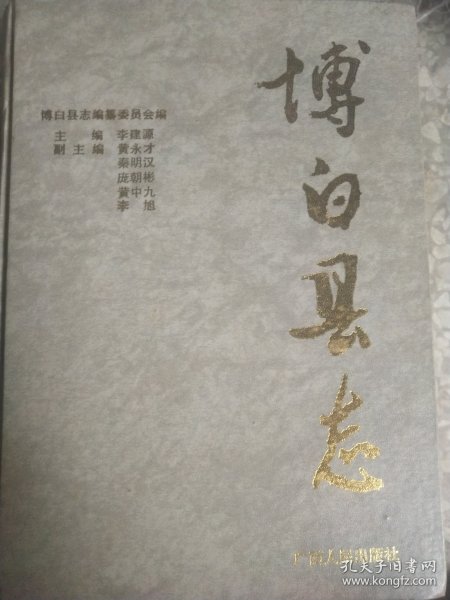 博白县志
博白县志编纂委员会编
主编 李建源
副主编 黄永才
秦明汉
庞朝彬
黄中九
李旭
广西人民出版社
孔夫子旧书网